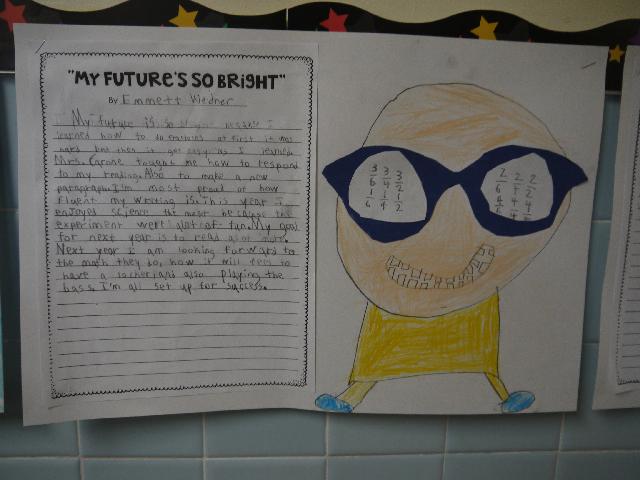 "MY FUTURE'S SO BRIGHT"
By Emmett Wedner
My future is so bright because I
learned how to do fractions at first it was
hard but then it got easy as I learned.
Mrs. Carone tought me how to respond
to my reading. Also to make a new
paragraph. I'm most proud of how
fluent my writing is. This year I
enjoyed science the most because the
experiment were alot of fun. My goal
for next year is to read alot more.
Next year I am looking forward to
the math they do, how it will feel to
have a locker, and also playing the
bass. I'm all set up for success.